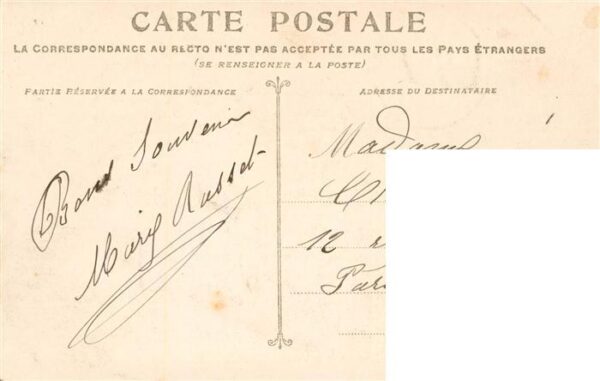 CARTE POSTALE
LA CORRESPONDANCE AU RECTO N'EST PAS ACCEPTÉE PAR TOUS LES PAYS ÉTRANGERS
(SE RENSEIGNER A LA POSTE)
PARTIE RÉSERVÉE A LA CORRESPONDANCE
Bons Souvenir
Mary Rousset
ADRESSE DU DESTINATAIRE
Madame
12 r
Par